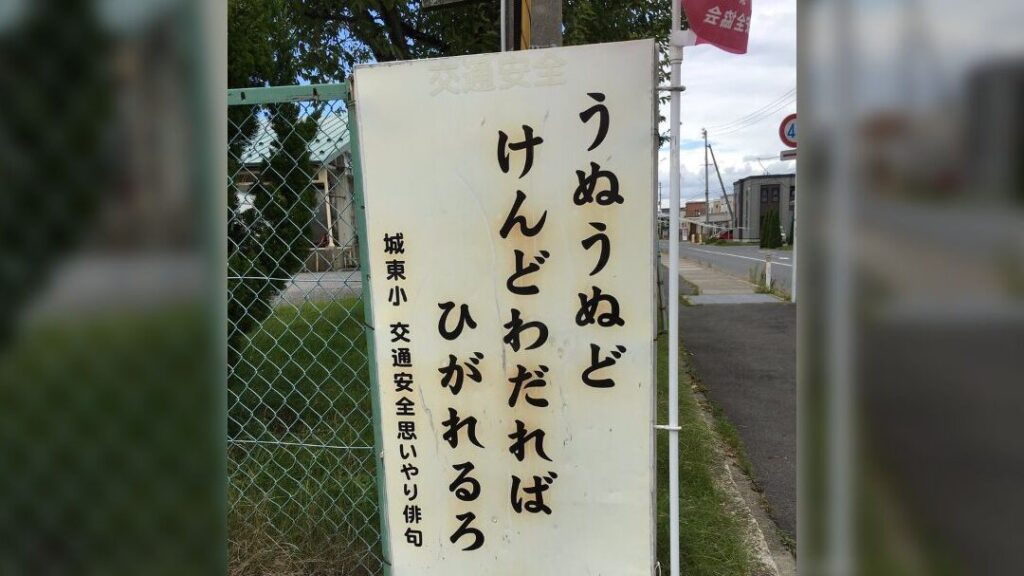 交通安全
うぬうぬど
けんどわだれば
ひがれるろ
城東小 交通安全思いやり俳句
全協会
4